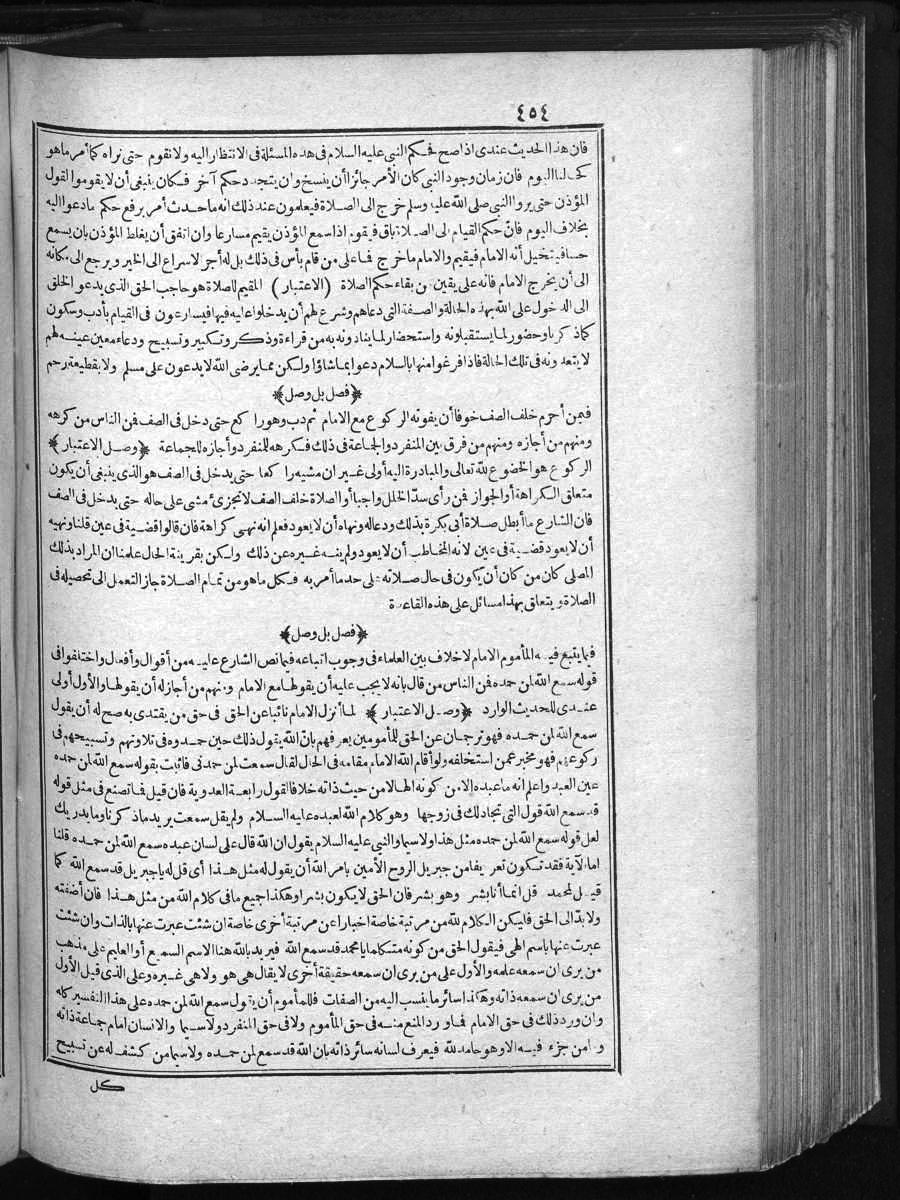 ٤٥٤
فان هذا الحديث عندى اذا صح فحكم النبي عليه السلام فى هذه المسئلة فى الانتظار اليه ولا نقوم حتى نراه كما أمر ما هو
كحالنا اليوم فان زمان وجود النبي كان الأمر جائزا أن ينسخ وان يتجدد حكم آخر فكان ينبغى أن لا يقوموا لقول
المؤذن حتى يروا النبي صلى الله عليه وسلم خرج الى الصلاة فيعلمون عند ذلك انه ما حدث أمر يرفع حكم ما دعوا اليه
بخلاف اليوم فان حكم القيام الى الصلاة باق فيقوم اذا سمع المؤذن يقيم مسارعا وان اتفق أن يغلط المؤذن بان يسمع
حسا فيتخيل أنه الامام فيقيم والامام ما خرج فما على من قام بأس فى ذلك بل له أجر الاسراع الى الخير ويرجع الى مكانه
الى أن يخرج الامام فانه على يقين من بقاء حكم الصلاة (الاعتبار) المقيم للصلاة هو حاجب الحق الذى يدعو الخلق
الى الدخول على الله بهذه الحالة والصفة التى دعاهم وشرع لهم أن يدخلوا عليه فيها فيسارعون فى القيام بأدب وسكون
كما ذكرنا وحضور لما يستقبلونه واستحضار لما ينادونه به من قراءة وذكر وتكبير وتسبيح ودعاء معين عينه لهم
لا يتعدونه فى تلك الحالة فاذا فرغوا منها بالسلام دعوا بما شاؤا ولكن مما يرضى الله لا يدعون على مسلم ولا بقطيعة رحم
﴿فصل بل وصل﴾
فيمن أحرم خلف الصف خوفا أن يفوته الركوع مع الامام ثم دب وهو راكع حتى دخل فى الصف فمن الناس من كرهه
ومنهم من أجازه ومنهم من فرق بين المنفرد والجماعة فى ذلك فكرهه للمنفرد وأجازه للجماعة ﴿وصل الاعتبار﴾
الركوع هو الخضوع لله تعالى والمبادرة اليه أولى غير ان مشيه راكعا حتى يدخل فى الصف هو الذى ينبغى أن يكون
متعلق الكراهة أو الجواز فمن رأى سد الخلل واجبا أو الصلاة خلف الصف لا تجزئ مشى على حاله حتى يدخل فى الصف
فان الشارع ما أبطل صلاة أبى بكرة بذلك ودعا له ونهاه أن لا يعود فعلم انه نهى كراهة فان قالوا قضية فى عين قلنا ونهيه
أن لا يعود قضية فى عين لانه المخاطب أن لا يعود ولم ينه غيره عن ذلك ولكن بقرينة الحال علمنا ان المراد بذلك
المصلى كان من كان أن يكون فى حال صلاته على حد ما أمر به فكل ما هو من تمام الصلاة جاز التعمل الى تحصيله فى
الصلاة ويتعلق بهذا مسائل على هذه القاعدة
﴿فصل بل وصل﴾
فيما يتبع فيه المأموم الامام لا خلاف بين العلماء فى وجوب اتباعه فيما نص الشارع عليه من أقوال وأفعال واختلفوا فى
قوله سمع الله لمن حمده فمن الناس من قال بانه لا يجب عليه أن يقولها مع الامام ومنهم من أجاز له أن يقولها والأول أولى
عندى للحديث الوارد ﴿وصل الاعتبار﴾ لما أنزل الامام نائبا عن الحق فى حق من يقتدى به صح له أن يقول
سمع الله لمن حمده فهو ترجمان عن الحق للمأمومين يعرفهم بان الله يقول ذلك حين حمدوه فى تلاوتهم وتسبيحهم فى
ركوعهم فهو مخبر عمن استخلفه ولو أقام الله الامام مقامه فى الحال لقال سمعت لمن حمدنى فاثبات بقوله سمع الله لمن حمده
عين العبد واعلم انه ما عبده الا من كونه الها لا من حيث ذاته خلافا لقول رابعة العدوية فان قيل فما تصنع فى مثل قوله
قد سمع الله قول التى تجادلك فى زوجها وهو كلام الله لعبده عليه السلام ولم يقل سمعت يريد ما ذكرنا وما يدريك
لعل قوله سمع الله لمن حمده مثل هذا ولا سيما والنبي عليه السلام يقول ان الله قال على لسان عبده سمع الله لمن حمده قلنا
اما الآية فقد تكون تعريفا من جبريل الروح الأمين بامر الله أن يقول له مثل هذا أى قل له يا جبريل قد سمع الله كما
قيل لمحمد قل انما أنا بشر وهو بشر فان الحق لا يكون بشرا وهكذا جميع ما فى كلام الله من مثل هذا فان أضفته
ولا بد الى الحق فليكن الكلام لله من مرتبة خاصة اخبارا عن مرتبة أخرى خاصة ان شئت عبرت عنها بالذات وان شئت
عبرت عنها باسم الهى فيقول الحق من كونه متكلما يا محمد قد سمع الله فيريد بالله هنا الاسم السميع أو العليم على مذهب
من يرى ان سمعه علمه والأول على من يرى ان سمعه حقيقة أخرى لا يقال هى هو ولا هى غيره وعلى الذى قيل الأول
من يرى ان سمعه ذاته وهكذا سائر ما ينسب اليه من الصفات فللمأموم أن يقول سمع الله لمن حمده على هذا التفسير كله
وان ورد ذلك فى حق الامام فما ورد المنع منه فى حق المأموم ولا فى حق المنفرد ولا سيما والانسان امام جماعة ذاته
وما من جزء فيه الا وهو حامد لله فيعرف لسانه سائر ذاته بان الله قد سمع لمن حمده ولا سيما من كشف له عن تسبيح
كل